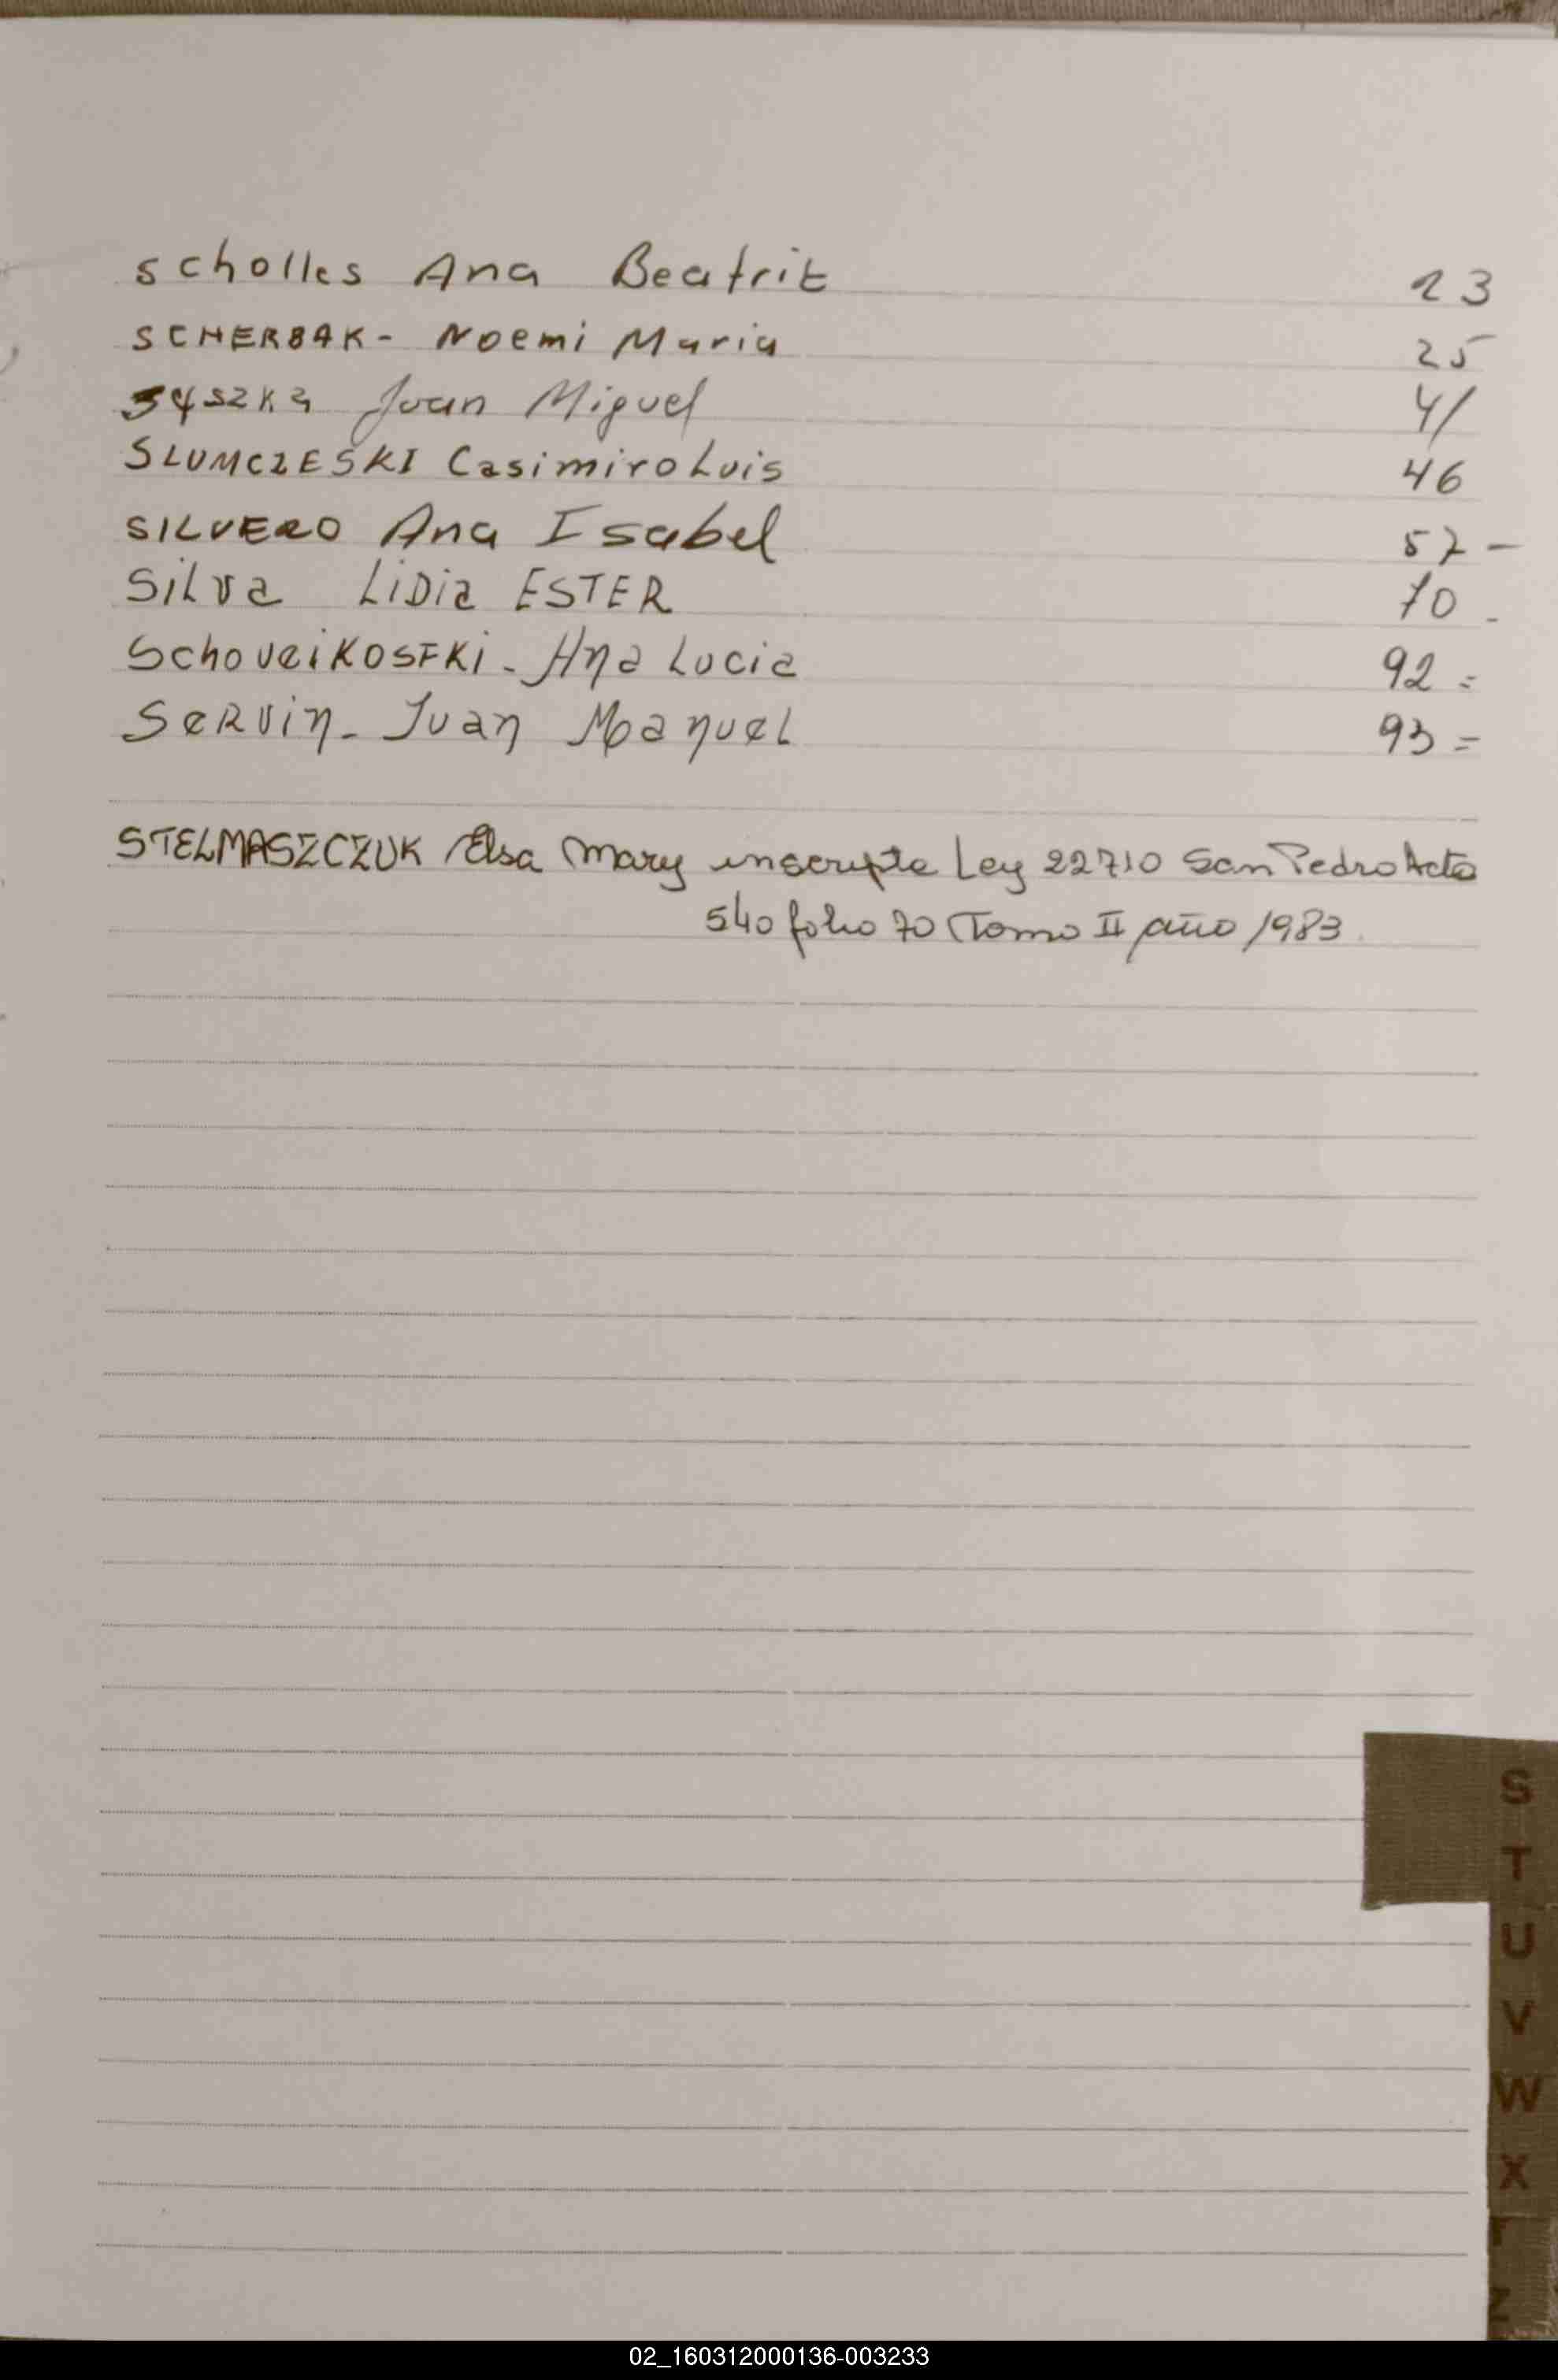 scholles Ana Beatriz 23
SCHERBAK- Noemi Maria 25
Syszka Juan Miguel 41
SLUMCZESKI Casimiro Luis 46
SILVERO Ana Isabel 57 -
Silva LiDia ESTER 70 -
SchoveiKOSFKi - Ana Lucia 92 =
Servin - Juan Manuel 93 =
STELMASZCZUK Elsa Mary inscripta Ley 22710 San Pedro Acta
540 folio 70 Tomo II año 1983
S
T
U
V
W
X
Y
Z
02_160312000136-003233